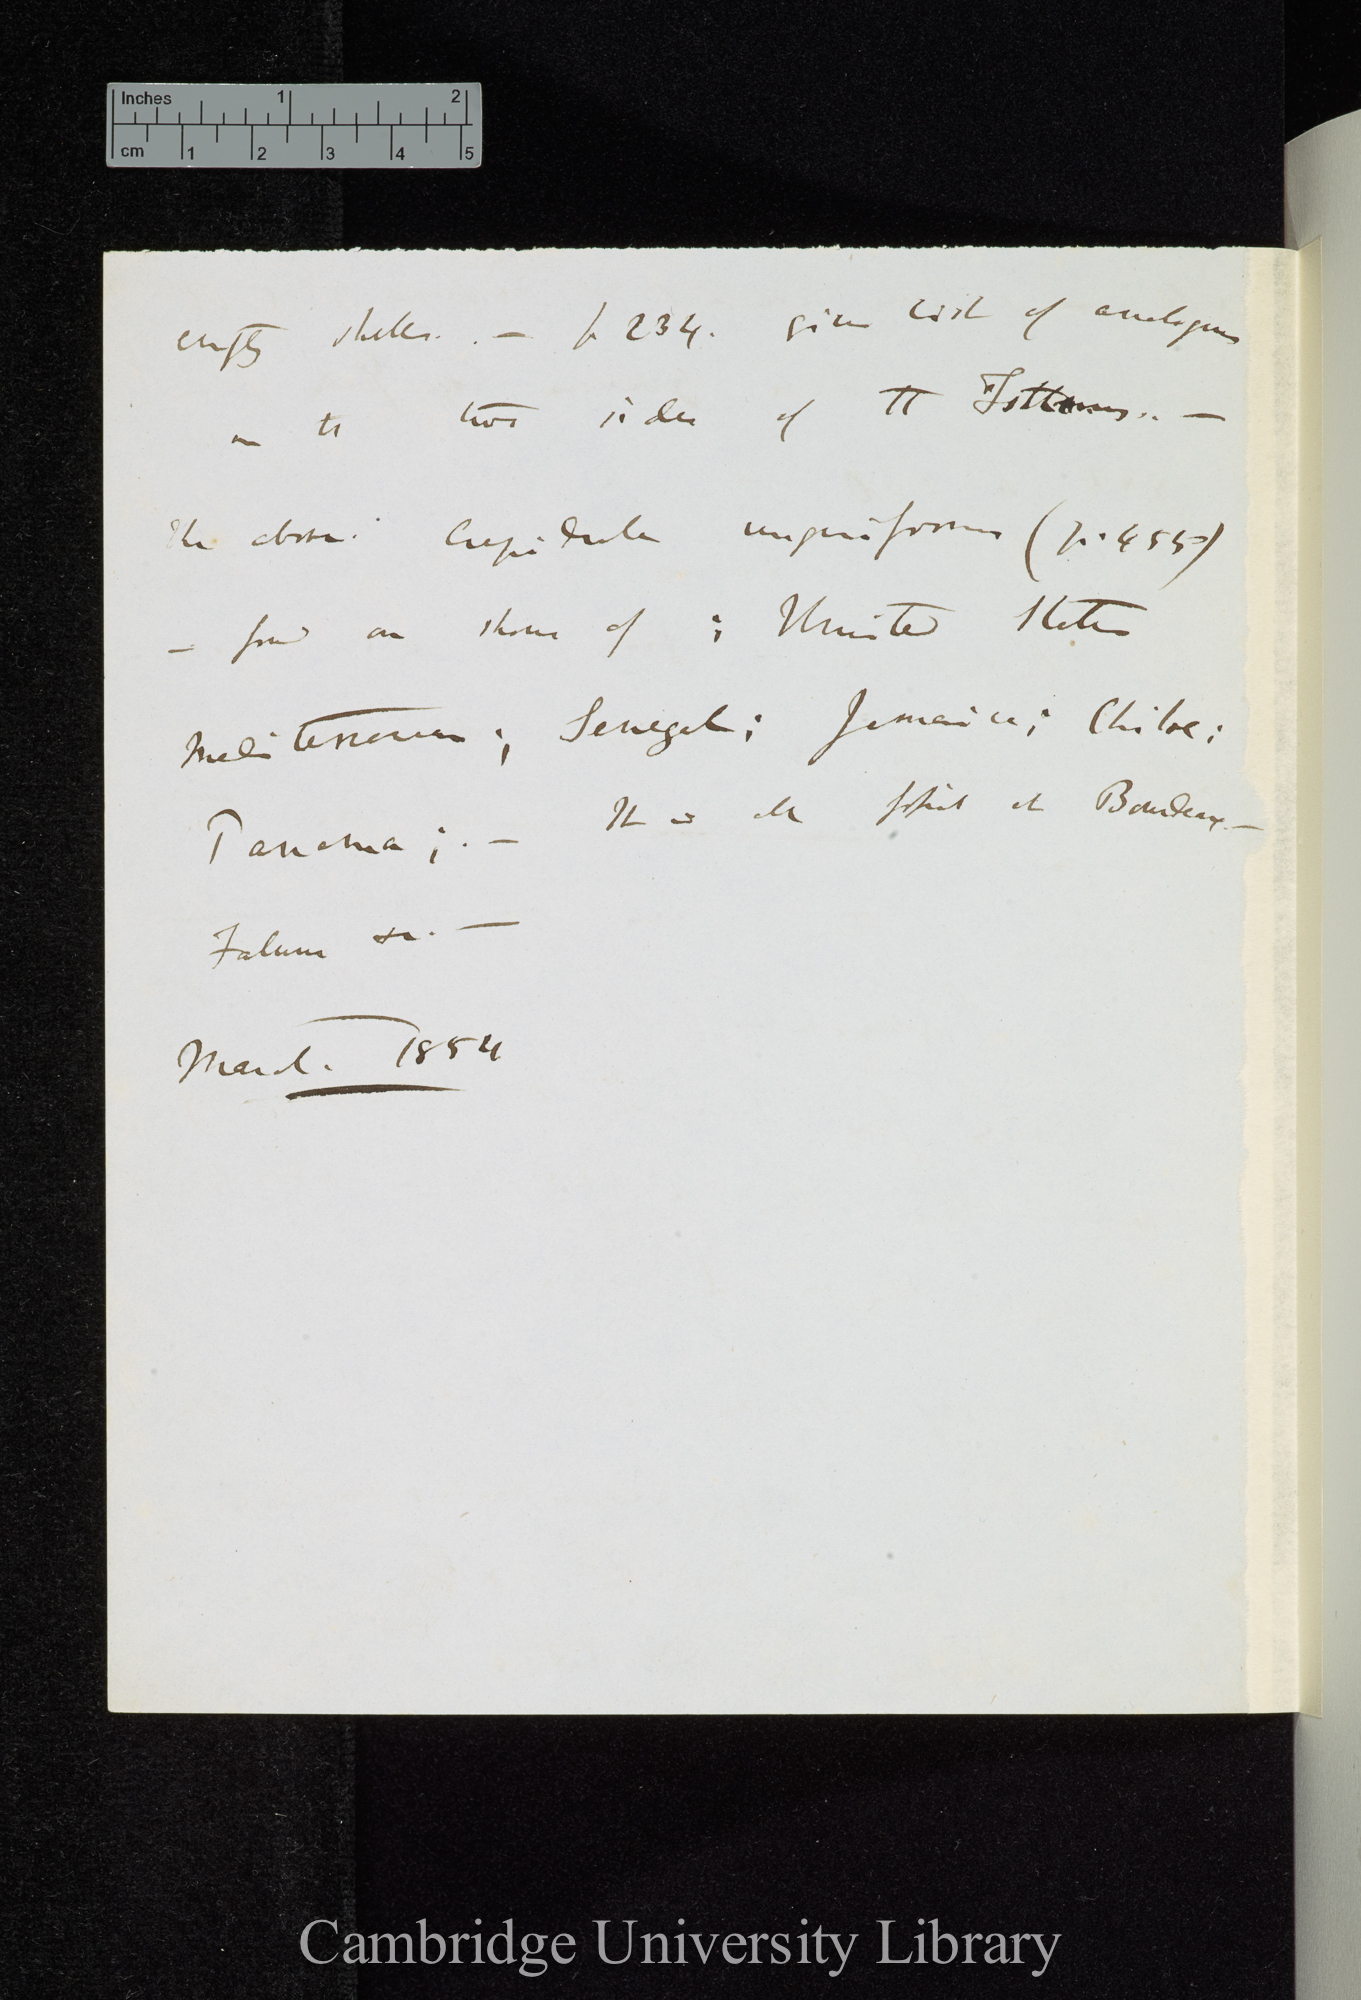 Inches 1 2
cm 1 2 3 4 5
empty shells. . — p 234. gives list of analogous
on the two sides of the Isthmus.. —
The above: Crepidula unguiformis (p. 455)
— found on shores of ; United States
Mediterranean ; Senegal ; Jamaica ; Chiloe ;
Panama ; . — It is also fossil at Bourdeaux —
Falum &c. —
March. 1854
Cambridge University Library